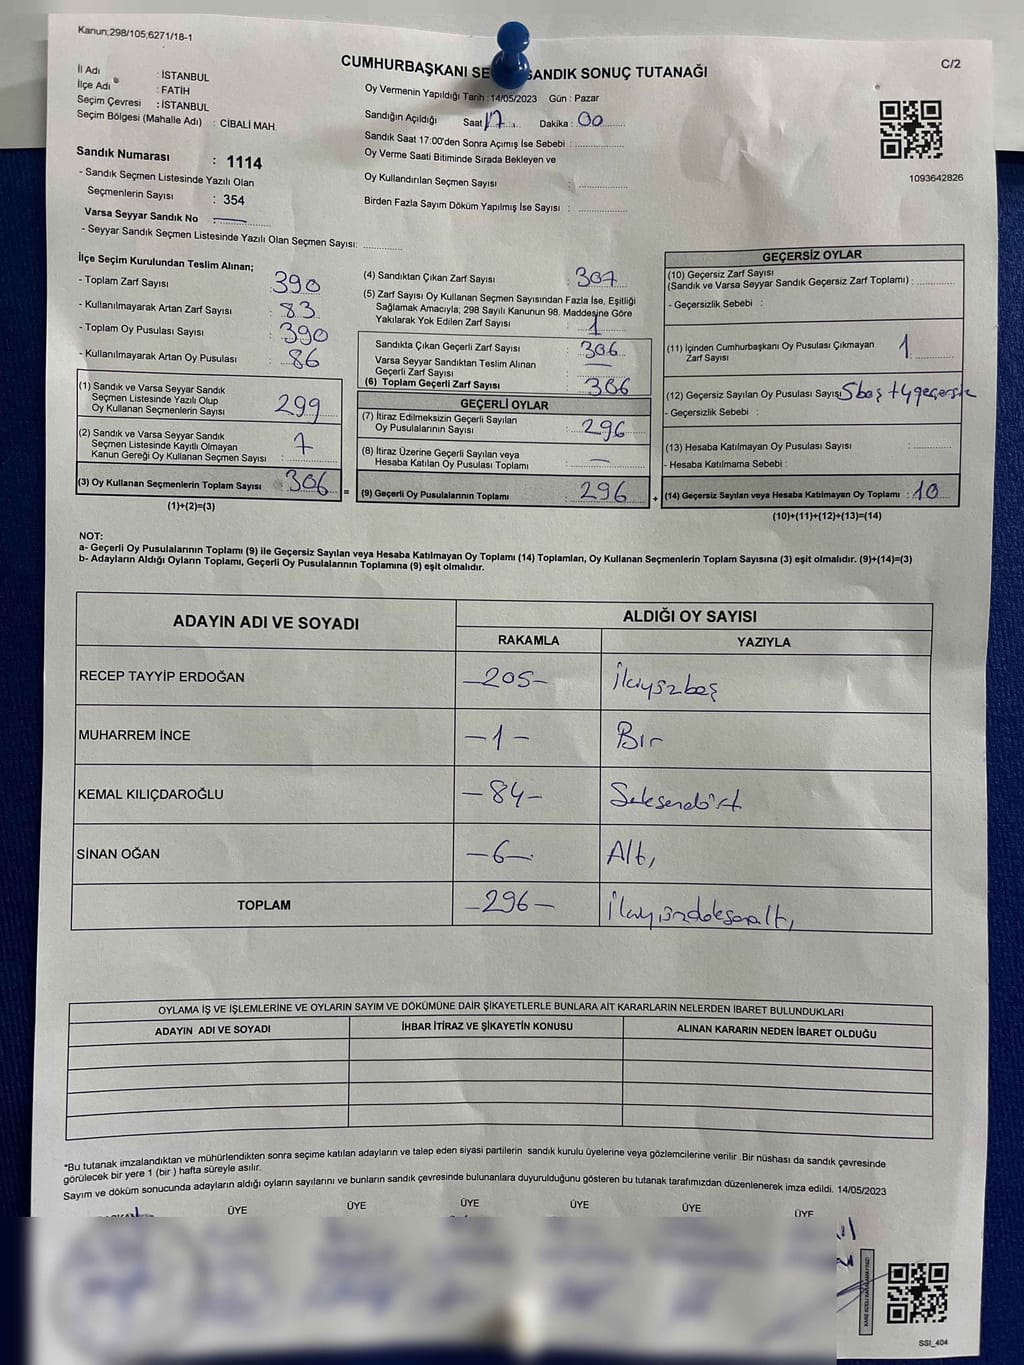 Kanun;298/105;6271/18-1
C/2
CUMHURBAŞKANI SE SANDIK SONUÇ TUTANAĞI
İl Adı : İSTANBUL
İlçe Adı : FATİH
Seçim Çevresi : İSTANBUL
Seçim Bölgesi (Mahalle Adı) : CİBALİ MAH.
Oy Vermenin Yapıldığı Tarih :14/05/2023 Gün : Pazar
Sandığın Açıldığı Saat 17 Dakika : 00
Sandık Saat 17:00'den Sonra Açımış İse Sebebi :
Oy Verme Saati Bitiminde Sırada Bekleyen ve
Oy Kullandırılan Seçmen Sayısı :
Birden Fazla Sayım Döküm Yapılmış İse Sayısı :
1093642826
Sandık Numarası : 1114
- Sandık Seçmen Listesinde Yazılı Olan
Seçmenlerin Sayısı : 354
Varsa Seyyar Sandık No :
- Seyyar Sandık Seçmen Listesinde Yazılı Olan Seçmen Sayısı:
İlçe Seçim Kurulundan Teslim Alınan;
- Toplam Zarf Sayısı : 390
- Kullanılmayarak Artan Zarf Sayısı : 83
- Toplam Oy Pusulası Sayısı : 390
- Kullanılmayarak Artan Oy Pusulası : 86
(1) Sandık ve Varsa Seyyar Sandık
Seçmen Listesinde Yazılı Olup
Oy Kullanan Seçmenlerin Sayısı : 299
(2) Sandık ve Varsa Seyyar Sandık
Seçmen Listesinde Kayıtlı Olmayan
Kanun Gereği Oy Kullanan Seçmen Sayısı : 7
(3) Oy Kullanan Seçmenlerin Toplam Sayısı : 306 =
(1)+(2)=(3)
(4) Sandıktan Çıkan Zarf Sayısı : 307
(5) Zarf Sayısı Oy Kullanan Seçmen Sayısından Fazla İse, Eşitliği
Sağlamak Amacıyla; 298 Sayılı Kanunun 98. Maddesine Göre
Yakılarak Yok Edilen Zarf Sayısı : 1
Sandıkta Çıkan Geçerli Zarf Sayısı : 306
Varsa Seyyar Sandıktan Teslim Alınan
Geçerli Zarf Sayısı : —
(6) Toplam Geçerli Zarf Sayısı : 306
GEÇERLİ OYLAR
(7) İtiraz Edilmeksizin Geçerli Sayılan
Oy Pusulalarının Sayısı : 296
(8) İtiraz Üzerine Geçerli Sayılan veya
Hesaba Katılan Oy Pusulası Toplamı : —
(9) Geçerli Oy Pusulalarının Toplamı : 296 +
GEÇERSİZ OYLAR
(10) Geçersiz Zarf Sayısı
(Sandık ve Varsa Seyyar Sandık Geçersiz Zarf Toplamı) :
- Geçersizlik Sebebi :
(11) İçinden Cumhurbaşkanı Oy Pusulası Çıkmayan
Zarf Sayısı : 1
(12) Geçersiz Sayılan Oy Pusulası Sayısı 5 boş + 4 geçersiz
- Geçersizlik Sebebi :
(13) Hesaba Katılmayan Oy Pusulası Sayısı :
- Hesaba Katılmama Sebebi :
(14) Geçersiz Sayılan veya Hesaba Katılmayan Oy Toplamı : 10
(10)+(11)+(12)+(13)=(14)
NOT:
a- Geçerli Oy Pusulalarının Toplamı (9) ile Geçersiz Sayılan veya Hesaba Katılmayan Oy Toplamı (14) Toplamları, Oy Kullanan Seçmenlerin Toplam Sayısına (3) eşit olmalıdır. (9)+(14)=(3)
b- Adayların Aldığı Oyların Toplamı, Geçerli Oy Pusulalarının Toplamına (9) eşit olmalıdır.
ADAYIN ADI VE SOYADI ALDIĞI OY SAYISI
RAKAMLA YAZIYLA
RECEP TAYYİP ERDOĞAN -205- İkiyüzbeş
MUHARREM İNCE -1- Bir
KEMAL KILIÇDAROĞLU -84- Seksendört
SİNAN OĞAN -6- Altı
TOPLAM -296- İkiyüzdoksanaltı
OYLAMA İŞ VE İŞLEMLERİNE VE OYLARIN SAYIM VE DÖKÜMÜNE DAİR ŞİKAYETLERLE BUNLARA AİT KARARLARIN NELERDEN İBARET BULUNDUKLARI
ADAYIN ADI VE SOYADI İHBAR İTİRAZ VE ŞİKAYETİN KONUSU ALINAN KARARIN NEDEN İBARET OLDUĞU
*Bu tutanak imzalandıktan ve mühürlendikten sonra seçime katılan adayların ve talep eden siyasi partilerin sandık kurulu üyelerine veya gözlemcilerine verilir .Bir nüshası da sandık çevresinde
görülecek bir yere 1 (bir ) hafta süreyle asılır.
Sayım ve döküm sonucunda adayların aldığı oyların sayılarını ve bunların sandık çevresinde bulunanlara duyurulduğunu gösteren bu tutanak tarafımızdan düzenlenerek imza edildi. 14/05/2023
ÜYE ÜYE ÜYE ÜYE ÜYE ÜYE
SSI_404